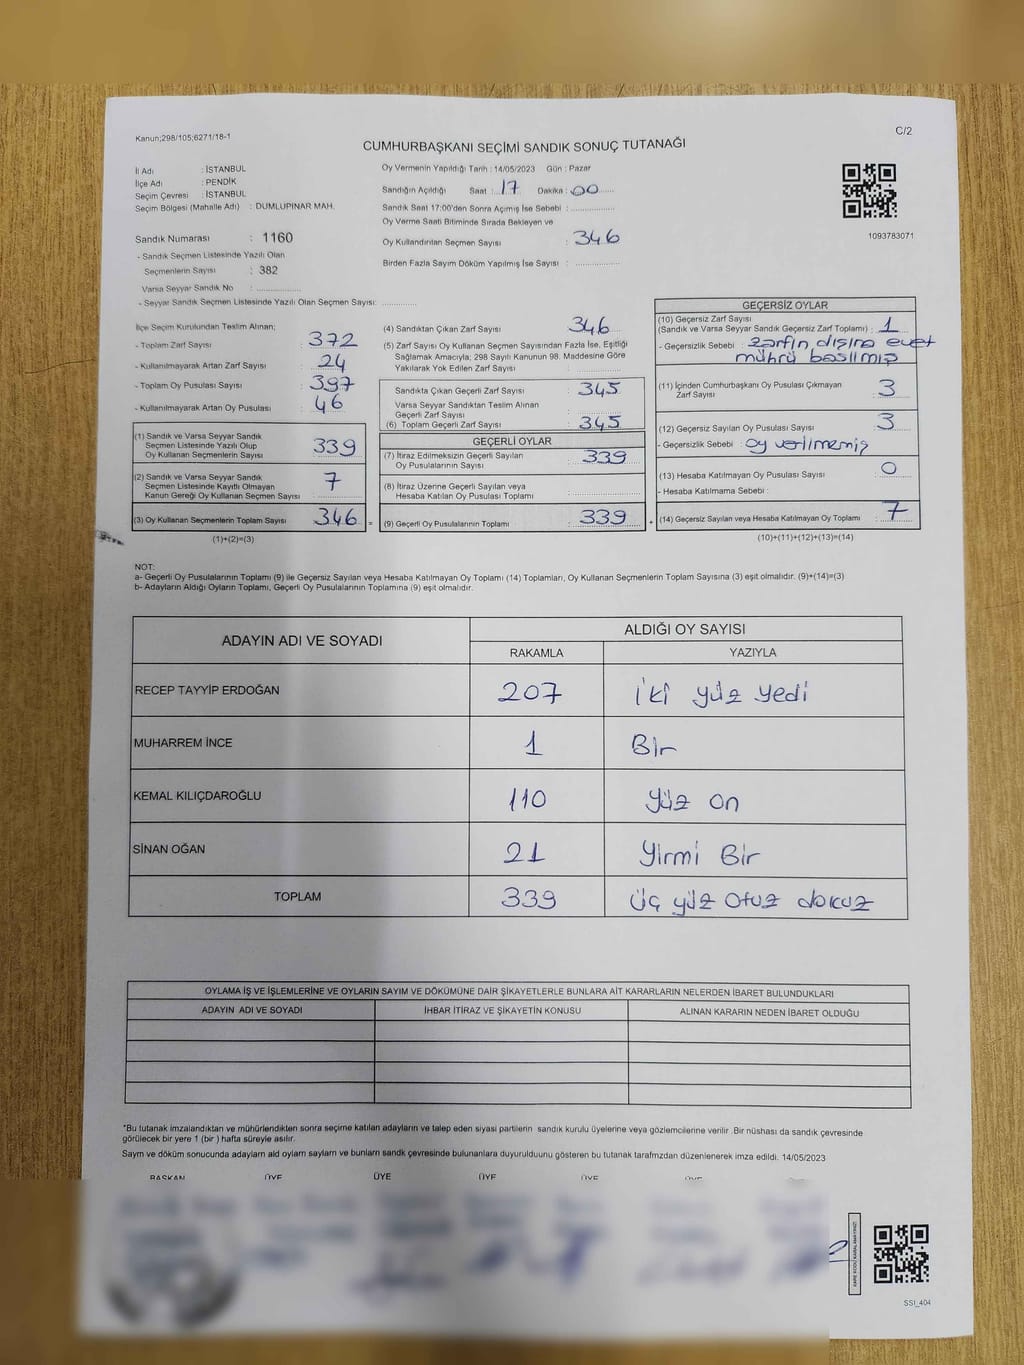 Kanun;298/105;6271/18-1
C/2
CUMHURBAŞKANI SEÇİMİ SANDIK SONUÇ TUTANAĞI
İl Adı : İSTANBUL
İlçe Adı : PENDİK
Seçim Çevresi : İSTANBUL
Seçim Bölgesi (Mahalle Adı) : DUMLUPINAR MAH.
Sandık Numarası : 1160
- Sandık Seçmen Listesinde Yazılı Olan
Seçmenlerin Sayısı : 382
Varsa Seyyar Sandık No :
- Seyyar Sandık Seçmen Listesinde Yazılı Olan Seçmen Sayısı:
Oy Vermenin Yapıldığı Tarih : 14/05/2023 Gün : Pazar
Sandığın Açıldığı Saat : 17 Dakika : 00
Sandık Saat 17:00'den Sonra Açılmış İse Sebebi :
Oy Verme Saati Bitiminde Sırada Bekleyen ve
Oy Kullandırılan Seçmen Sayısı : 346
Birden Fazla Sayım Döküm Yapılmış İse Sayısı :
1093783071
İlçe Seçim Kurulundan Teslim Alınan;
- Toplam Zarf Sayısı : 372
- Kullanılmayarak Artan Zarf Sayısı : 24
- Toplam Oy Pusulası Sayısı : 397
- Kullanılmayarak Artan Oy Pusulası : 46
(1) Sandık ve Varsa Seyyar Sandık
Seçmen Listesinde Yazılı Olup
Oy Kullanan Seçmenlerin Sayısı : 339
(2) Sandık ve Varsa Seyyar Sandık
Seçmen Listesinde Kayıtlı Olmayan
Kanun Gereği Oy Kullanan Seçmen Sayısı : 7
(3) Oy Kullanan Seçmenlerin Toplam Sayısı : 346 =
(1)+(2)=(3)
(4) Sandıktan Çıkan Zarf Sayısı : 346
(5) Zarf Sayısı Oy Kullanan Seçmen Sayısından Fazla İse, Eşitliği
Sağlamak Amacıyla; 298 Sayılı Kanunun 98. Maddesine Göre
Yakılarak Yok Edilen Zarf Sayısı :
Sandıkta Çıkan Geçerli Zarf Sayısı : 345
Varsa Seyyar Sandıktan Teslim Alınan
Geçerli Zarf Sayısı :
(6) Toplam Geçerli Zarf Sayısı : 345
GEÇERLİ OYLAR
(7) İtiraz Edilmeksizin Geçerli Sayılan
Oy Pusulalarının Sayısı : 339
(8) İtiraz Üzerine Geçerli Sayılan veya
Hesaba Katılan Oy Pusulası Toplamı :
(9) Geçerli Oy Pusulalarının Toplamı : 339 +
GEÇERSİZ OYLAR
(10) Geçersiz Zarf Sayısı
(Sandık ve Varsa Seyyar Sandık Geçersiz Zarf Toplamı) : 1
- Geçersizlik Sebebi : Zarfın dışına evet
mührü basılmış
(11) İçinden Cumhurbaşkanı Oy Pusulası Çıkmayan
Zarf Sayısı : 3
(12) Geçersiz Sayılan Oy Pusulası Sayısı : 3
- Geçersizlik Sebebi : oy verilmemiş
(13) Hesaba Katılmayan Oy Pusulası Sayısı : 0
- Hesaba Katılmama Sebebi :
(14) Geçersiz Sayılan veya Hesaba Katılmayan Oy Toplamı : 7
(10)+(11)+(12)+(13)=(14)
NOT:
a- Geçerli Oy Pusulalarının Toplamı (9) ile Geçersiz Sayılan veya Hesaba Katılmayan Oy Toplamı (14) Toplamları, Oy Kullanan Seçmenlerin Toplam Sayısına (3) eşit olmalıdır. (9)+(14)=(3)
b- Adayların Aldığı Oyların Toplamı, Geçerli Oy Pusulalarının Toplamına (9) eşit olmalıdır.
ADAYIN ADI VE SOYADI ALDIĞI OY SAYISI
RAKAMLA YAZIYLA
RECEP TAYYİP ERDOĞAN 207 iki yüz yedi
MUHARREM İNCE 1 Bir
KEMAL KILIÇDAROĞLU 110 yüz on
SİNAN OĞAN 21 Yirmi Bir
TOPLAM 339 üç yüz otuz dokuz
OYLAMA İŞ VE İŞLEMLERİNE VE OYLARIN SAYIM VE DÖKÜMÜNE DAİR ŞİKAYETLERLE BUNLARA AİT KARARLARIN NELERDEN İBARET BULUNDUKLARI
ADAYIN ADI VE SOYADI İHBAR İTİRAZ VE ŞİKAYETİN KONUSU ALINAN KARARIN NEDEN İBARET OLDUĞU
*Bu tutanak imzalandıktan ve mühürlendikten sonra seçime katılan adayların ve talep eden siyasi partilerin sandık kurulu üyelerine veya gözlemcilerine verilir .Bir nüshası da sandık çevresinde
görülecek bir yere 1 (bir ) hafta süreyle asılır.
Sayım ve döküm sonucunda adayların ald oyların sayları ve bunların sandk çevresinde bulunanlara duyurulduunu gösteren bu tutanak tarafmzdan düzenlenerek imza edildi. 14/05/2023
BAŞKAN ÜYE ÜYE ÜYE ÜYE ÜYE
SSI_404